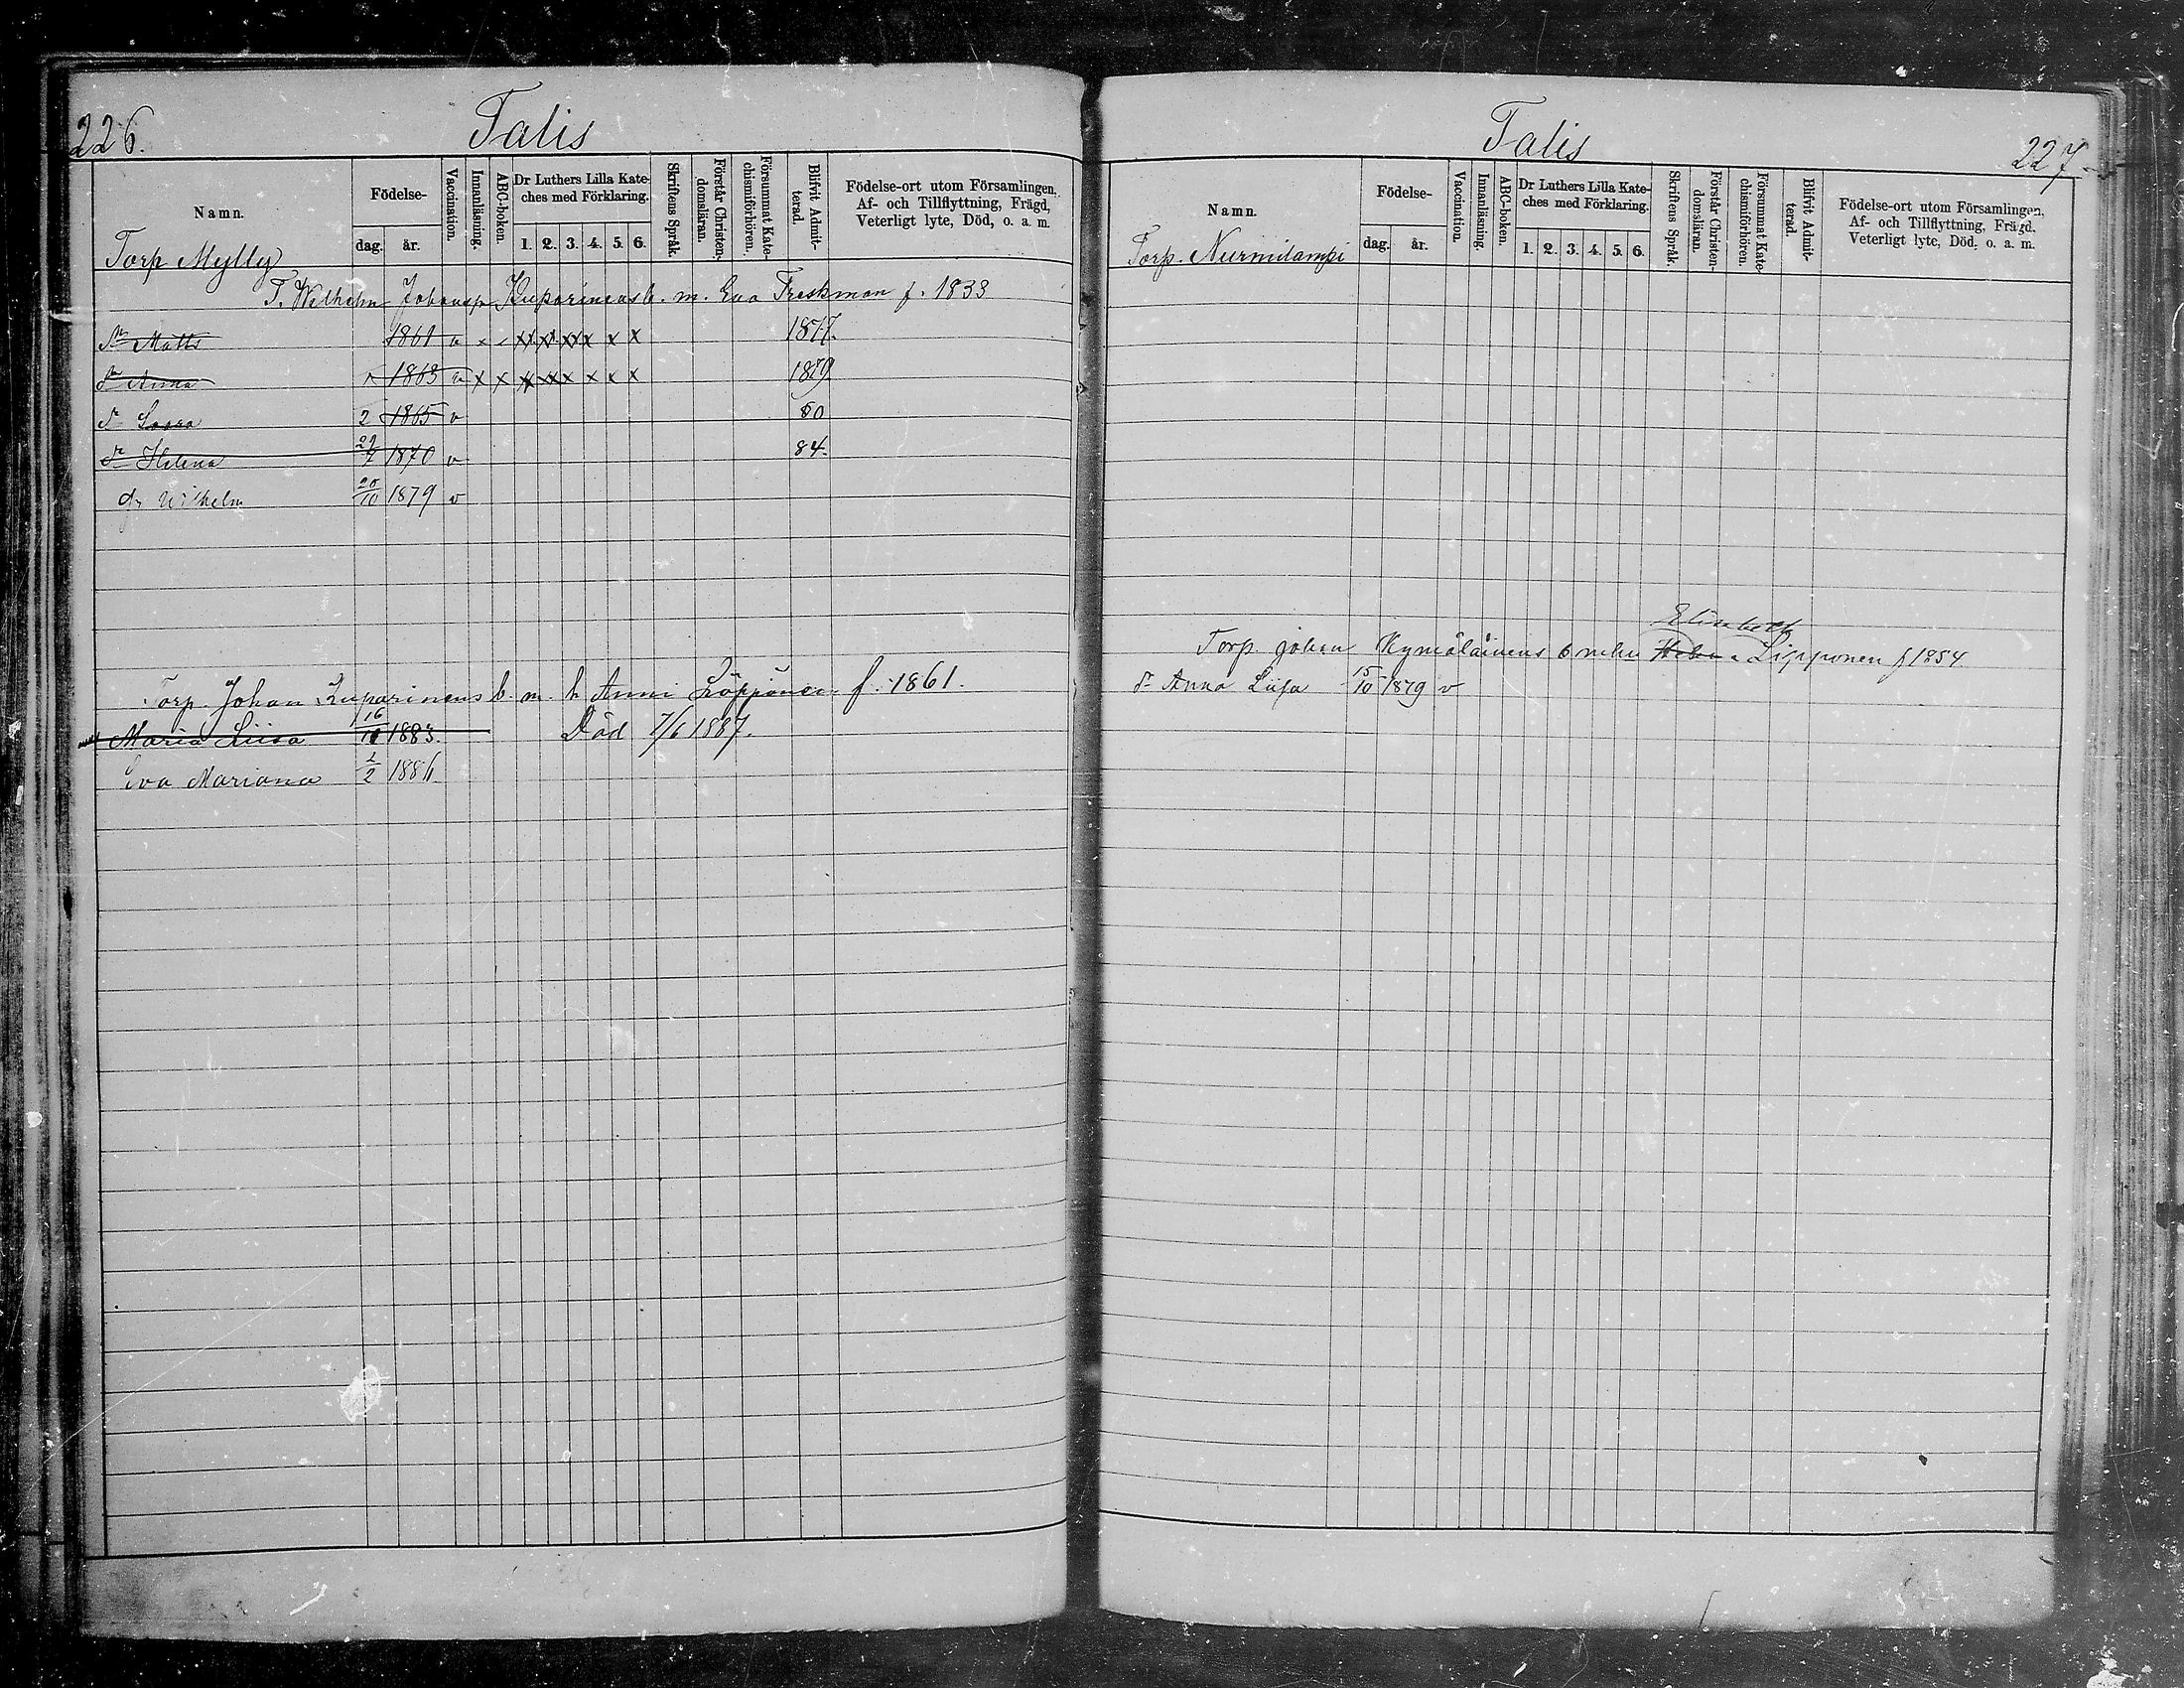 226.
Talis
Namn.
Födelse-
dag. år.
Vaccination.
Innanläsning.
ABC-boken.
Dr Luthers Lilla Kate-
ches med Förklaring.
1. 2. 3. 4. 5. 6.
Skriftens Språk.
Förstår Christen-
domsläran.
Försummat Kate-
chismiförhören.
Blifvit Admit-
terad.
Födelse-ort utom Församlingen,
Af- och Tillflyttning, Frägd,
Veterligt lyte, Död, o. a. m.
Torp Mylly
T. Wilhelm Johansp. Kuparinens b. m. Eva Freskman f. 1833
Matts 1861 v x x x x x x x x 1877.
Anna 1863 v x x x x x x x x 1879
2 1865 v 80
Helena 29/7 1870 v 84.
Wilhelm 20/10 1879 v
Torp. Johan Kuparinens b. m. h. Anni Löppönen f. 1861.
Maria Liisa 16/10 1883. Död 7/6 1887.
Eva Mariana 2/2 1886
Talis
227.
Namn.
Födelse-
dag. år.
Vaccination.
Innanläsning.
ABC-boken.
Dr Luthers Lilla Kate-
ches med Förklaring.
1. 2. 3. 4. 5. 6.
Skriftens Språk.
Förstår Christen-
domsläran.
Försummat Kate-
chismiförhören.
Blifvit Admit-
terad.
Födelse-ort utom Församlingen,
Af- och Tillflyttning, Frägd.
Veterligt lyte, Död. o. a. m.
Torp. Nurmilampi
Elisabeth
Torp. Johan Kymäläinens b Helena Lipponen f 1854
Anna Liisa 15/10 1879 v